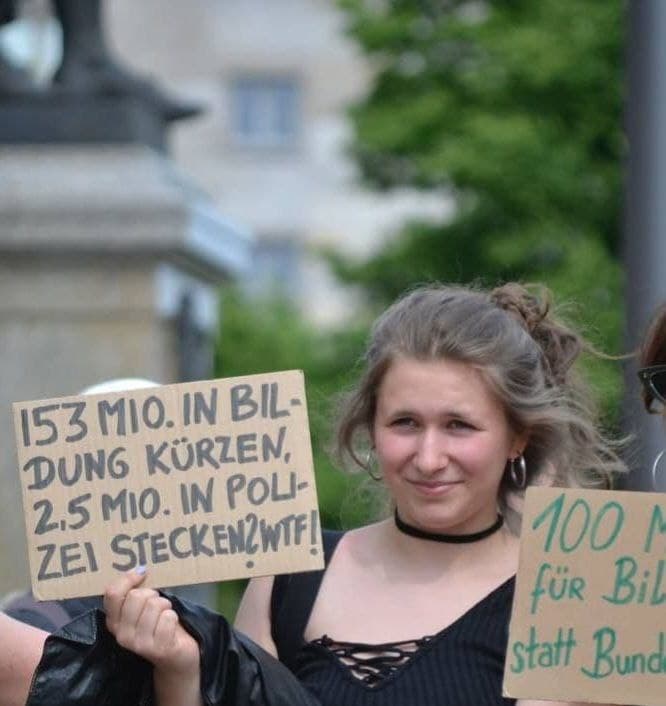 153 MIO. IN BIL-
DUNG KÜRZEN,
2,5 MIO. IN POLI-
ZEI STECKEN?WTF!
100 M
für BiL
statt Bunde